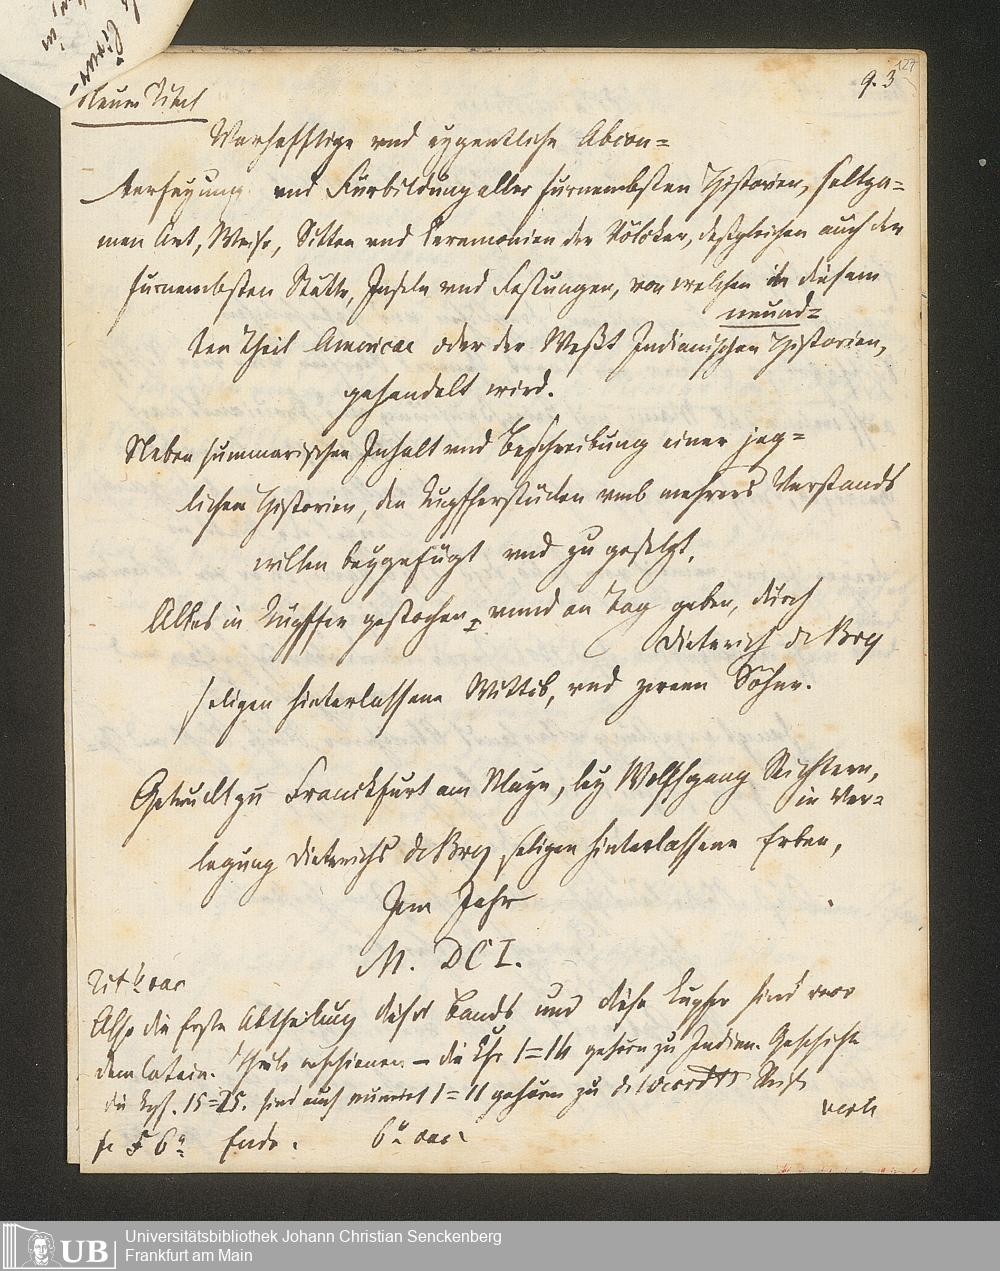 127
9.3
Neuer Titel
Warhafftige vnd eygentliche Abcon=
terfeyung vnd Fürbildung aller fürnembsten Historien, seltza=
men Art, Weise, Sitten vnd Ceremonien der Völcker, deßgleichen auch der
fürnembsten Stätte, Inseln vnd Festungen, von welchen in diesem
neund=
ten Theil Americae oder der West Indianischen Historien,
gehandelt wird.
Neben summarischen Inhalt vnd Beschreibung einer jeg=
lichen Historien, den Kupfferstücken vmb mehrers Verstands
willen beygefügt vnd zu gesetzt.
Alles in Kupffer gestochen, vnnd an Tag geben, durch
Dieterich de Bry
seligen hinterlassene Wittib, vnd zween Söhne.
Getruckt zu Franckfurt am Mayn, bey Wolffgang Richtern,
in Ver=
legung Dieterichs de Bry seligen hinterlassene Erben,
Im Jahr
M. DC I.
Tit b vac
Also die erste Abtheilung dieses Bands und diese Kupfer sind vor
dem latein. Theile erschienen. — die Kpf. 1=14 gehören zu Indian. Geschichte
die Kpf. 15=25. sind auch numerirt 1=11 gehören zu de Weerdts Reise
verte
fe F 6a Ende. 6b vac.
Universitätsbibliothek Johann Christian Senckenberg
UB Frankfurt am Main